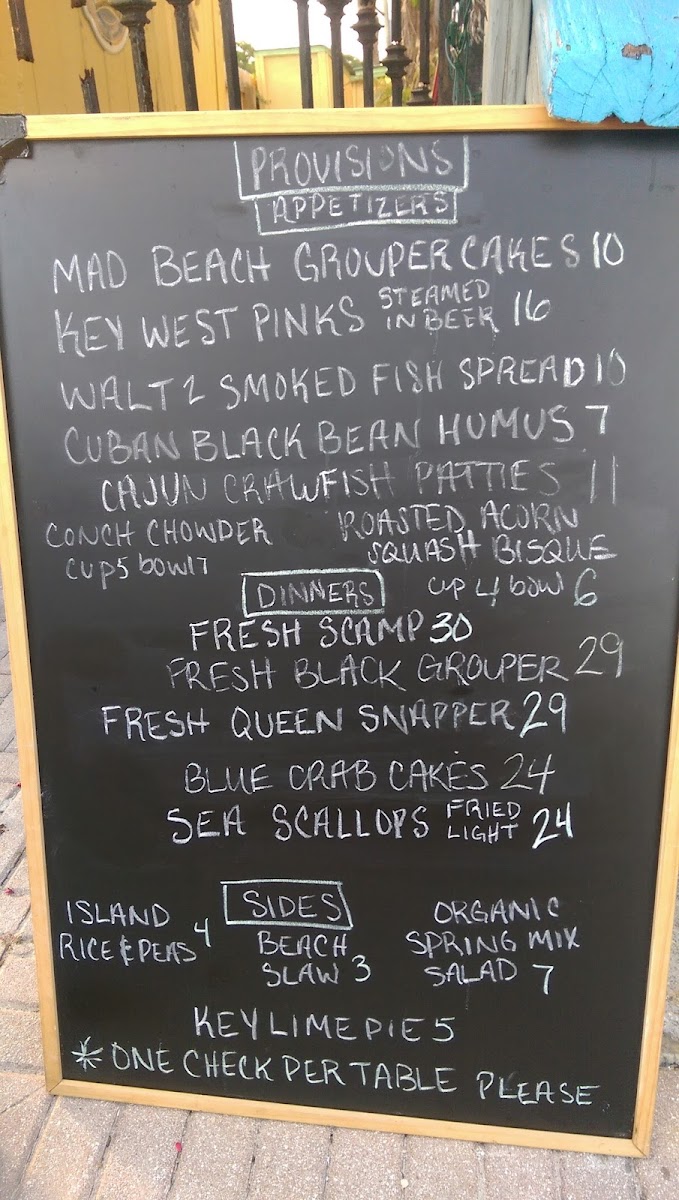 PROVISIONS
APPETIZERS
MAD BEACH GROUPER CAKES 10
KEY WEST PINKS STEAMED IN BEER 16
WALTZ SMOKED FISH SPREAD 10
CUBAN BLACK BEAN HUMUS 7
CAJUN CRAWFISH PATTIES 11
CONCH CHOWDER
CUP5 bowl7
ROASTED ACORN
SQUASH BISQUE
CUP 4 bowl 6
DINNERS
FRESH SCAMP 30
FRESH BLACK GROUPER 29
FRESH QUEEN SNAPPER 29
BLUE CRAB CAKES 24
SEA SCALLOPS FRIED LIGHT 24
SIDES
ISLAND
RICE & PEAS 4
BEACH
SLAW 3
ORGANIC
SPRING MIX
SALAD 7
KEY LIME PIE 5
*ONE CHECK PER TABLE PLEASE